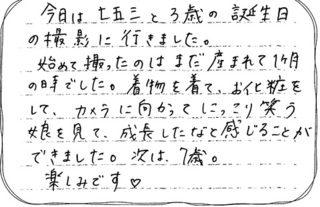 今日は七五三と3歳の誕生日
の撮影に行きました。
始めて撮ったのはまだ産まれて1ヶ月
の時でした。着物を着て、お化粧を
して、カメラに向かってにっこり笑う
娘を見て、成長したなと感じることが
できました。次は、7歳。
楽しみです♡